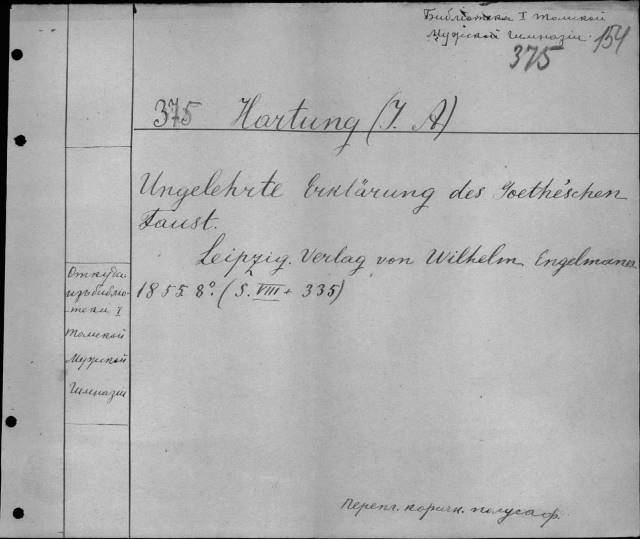 Библіотека I Томской
Мужской Гимназіи. 154
375
375 Hartung (J. A)
Ungelehrte Erklärung des Goethe'schen
Faust.
Leipzig. Verlag von Wilhelm Engelmann
1855 8º. (S. VIII + 335)
Откуда:
изъ библіо-
теки I
Томской
Мужской
Гимназіи
Перепл. коричн. полусаф.